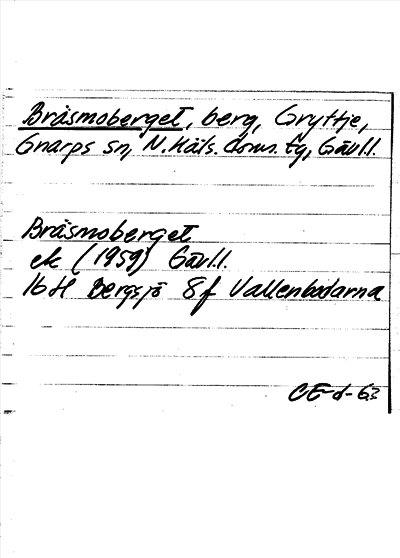 Bräsmoberget, berg, Gryttje,
Gnarps sn, N. Häls. doms. tg, Gävl.l.
Bräsmoberget
ek (1959) Gävl.l.
16H Bergsjö 8f Vallenbodarna
CE-d-63